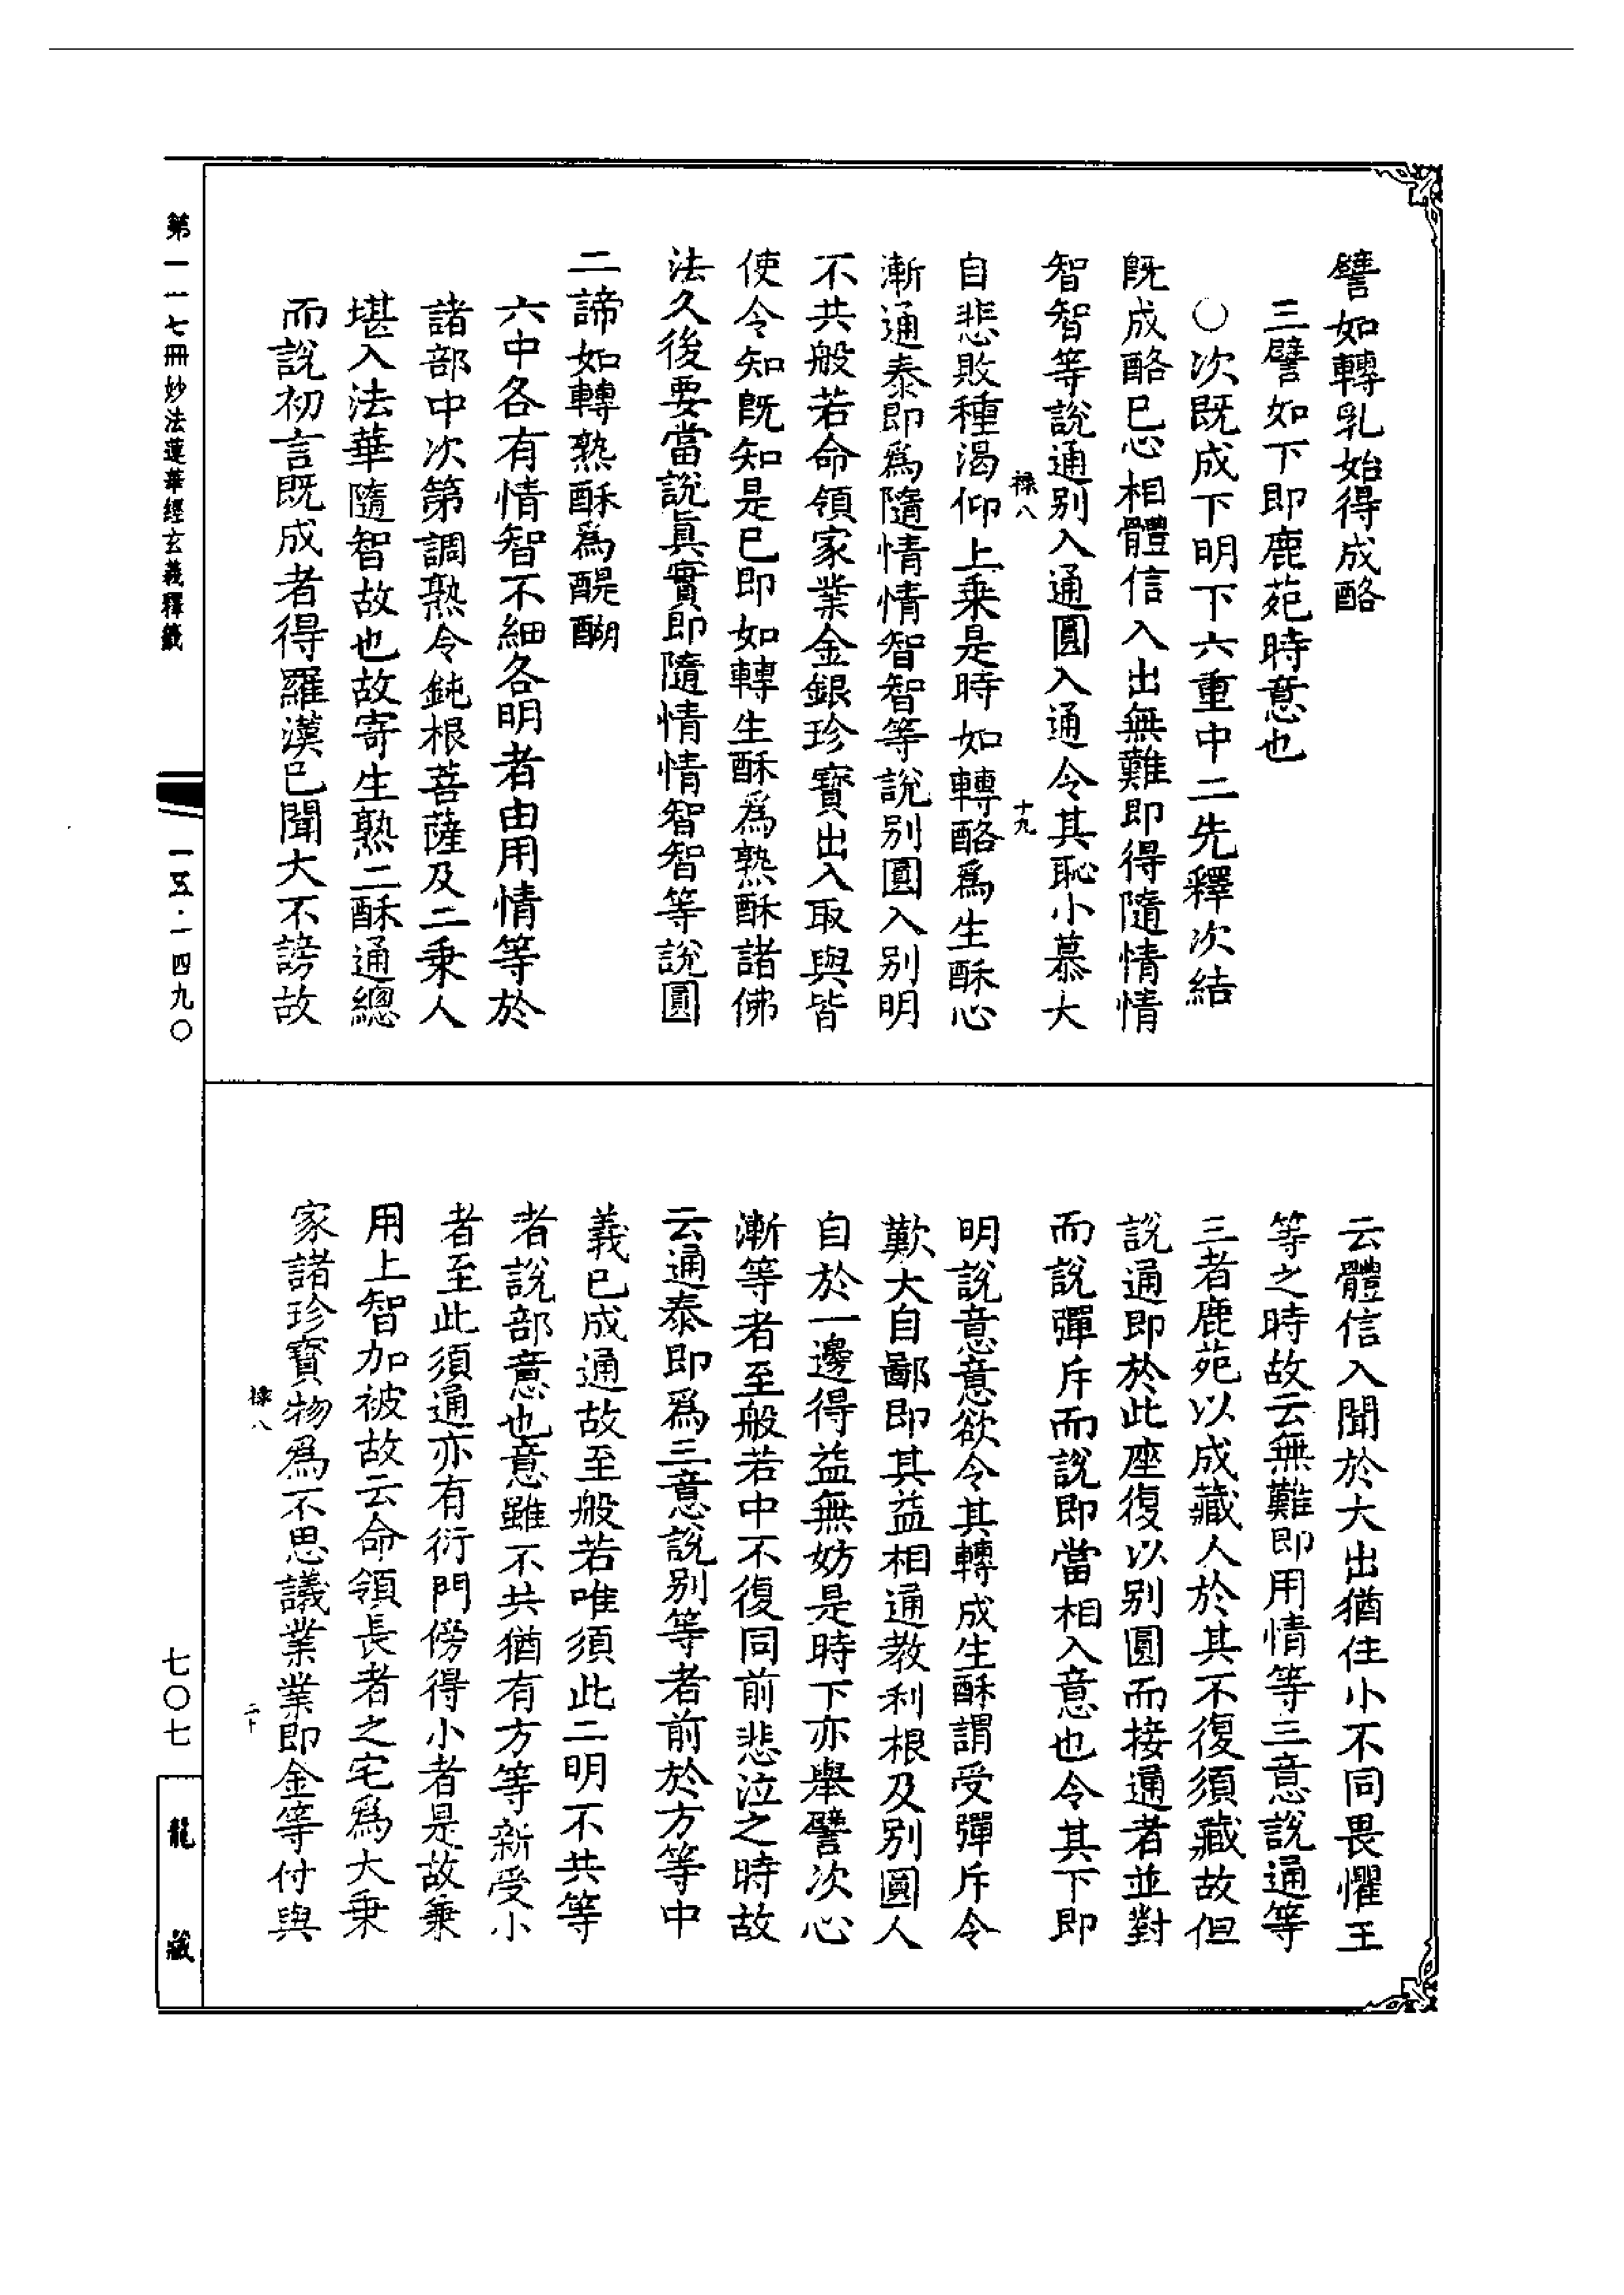 譬如轉乳始得成酪
三譬如下即鹿苑時意也
○次既成下明下六重中二先釋次結
既成酪已心相體信入出無難即得隨情情
智智等說通別入通圓入通令其恥小慕大
祿八 十九
自悲敗種渴仰上乗是時如轉酪爲生酥心
漸通泰即爲隨情情智智等說別圓入別明
不共般若命領家業金銀珍寳出入取與皆
使令知既知是已即如轉生酥爲熟酥諸佛
法久後要當說眞實即隨情情智智等說圓
二諦如轉熟酥爲醍醐
六中各有情智不細各明者由用情等於
諸部中次第調熟令鈍根菩薩及二乗人
堪入法華隨智故也故寄生熟二酥通總
而說初言既成者得羅漢已聞大不謗故
云體信入聞於大出猶住小不同畏懼王
等之時故云無難即用情等三意說通等
三者鹿苑以成藏人於其不復須藏故但
說通即於此座復以別圓而接通者並對
而說彈斥而說即當相入意也令其下即
明說意意欲令其轉成生酥謂受彈斥令
歎大自鄙即其益相通教利根及別圓人
自於一邊得益無妨是時下亦舉譬次心
漸等者至般若中不復同前悲泣之時故
云通泰即爲三意說別等者前於方等中
義已成通故至般若唯須此二明不共等
者說部意也意雖不共猶有方等新受小
者至此須通亦有衍門傍得小者是故兼
用上智加被故云命領長者之宅爲大乗
家諸珍寳物爲不思議業業即金等付與
祿八 二十
第一一七冊 妙法蓮華經玄義釋籤
一五·一四九〇
七〇七
龍藏